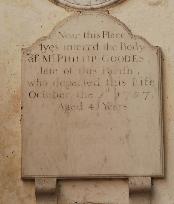 Near this Place
lyes interred the Body
of Mr PHILIP GOODES
late of this Parish,
who departed this Life
October the 1767
Aged 4 Years